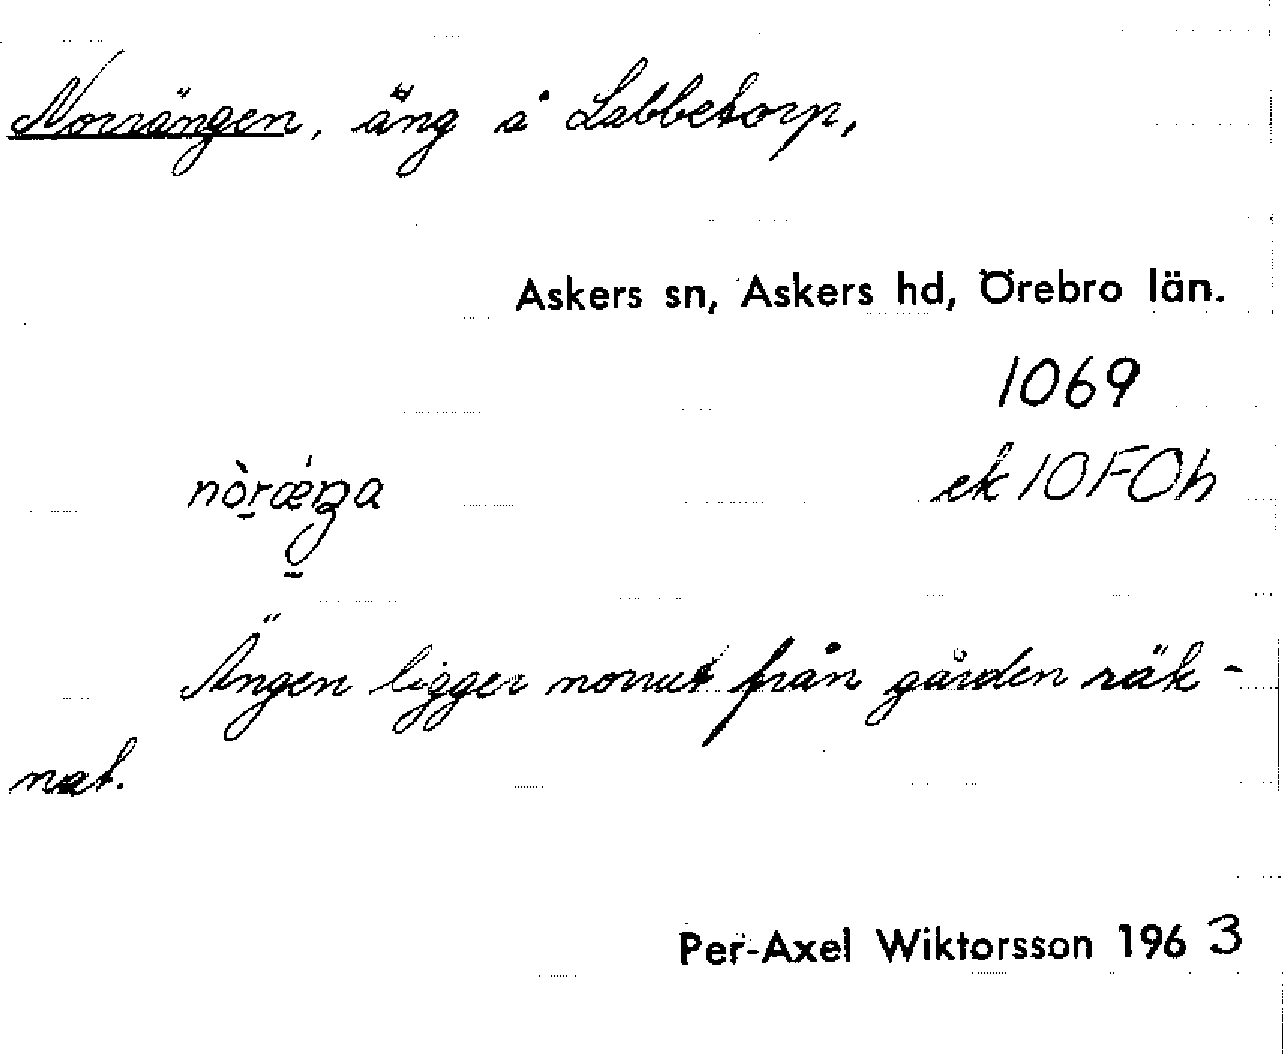 Norrängen, äng å Labbetorp,
Askers sn, Askers hd, Örebro län.
1069
nòrǽŋa
ek 10F0h
Ängen ligger norrut från gården räk-
nat.
Per-Axel Wiktorsson 1963